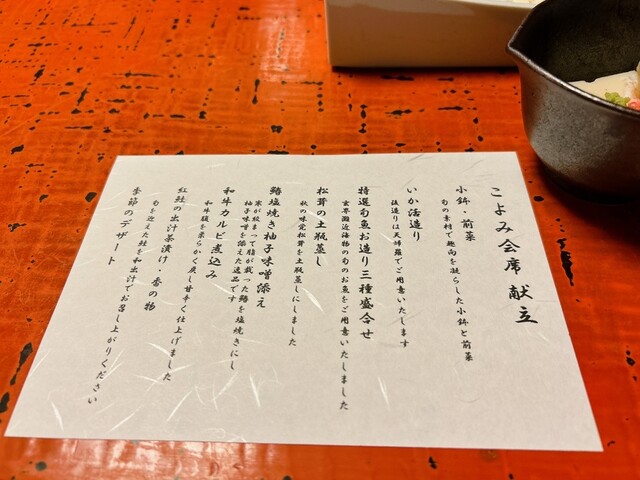 こよみ会席 献立
小鉢・前菜
旬の素材で趣向を凝らした小鉢と前菜
いか活造り
後造りは天婦羅でご用意いたします
特選旬魚お造り三種盛合せ
玄界灘近海物の旬のお魚をご用意いたしました
松茸の土瓶蒸し
秋の味覚松茸を土瓶蒸しにしました
鰆塩焼き柚子味噌添え
寒が絞まって脂が載った鰆を塩焼きにし
柚子味噌を添えた逸品です
和牛カルビ煮込み
和牛腹を柔らかく炊し甘辛く仕上げました
紅鮭の出汁茶漬け・香の物
旬を迎えた鮭を和出汁でお召し上がりください
季節のデザート